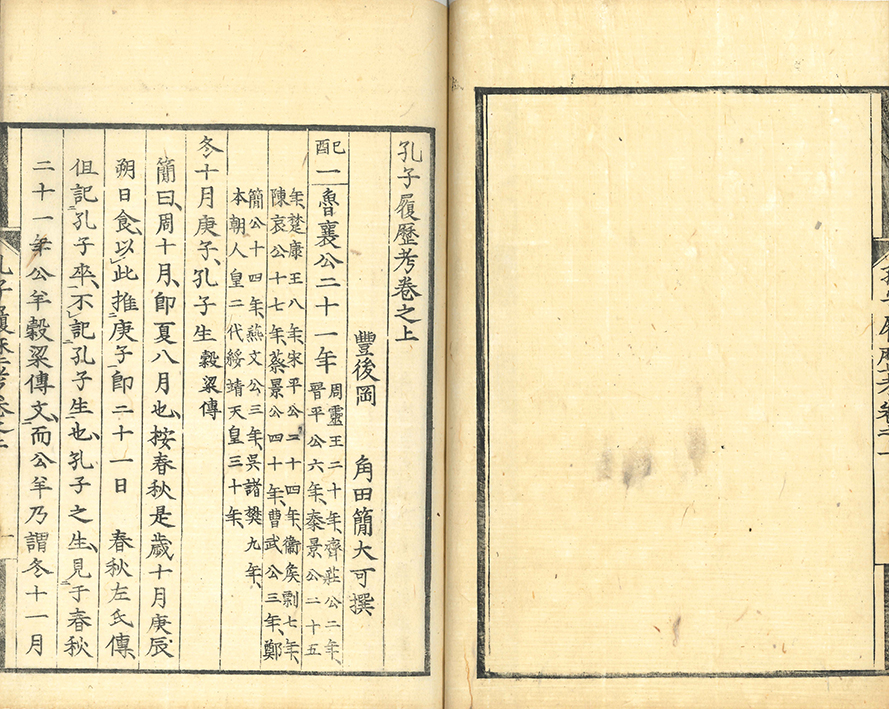 孔子履歷考卷之上
豐後岡　角田簡大可撰
己酉
一魯襄公二十一年
周靈王二十年、齊莊公二年、
晉平公六年、秦景公二十五
年、楚康王八年、宋平公二十四年、衞矦剽七年、
陳哀公十七年、蔡景公四十年、曹武公三年、鄭
簡公十四年、燕文公三年、吳諸樊九年、
本朝人皇二代綏靖天皇三十年、
冬十月庚子、孔子生 穀梁傳
簡曰、周十月、卽夏八月也、按春秋是歲十月庚辰
朔日食、以此推庚子卽二十一日　春秋左氏傳、
但記孔子卒、不記孔子生也、孔子之生、見于春秋
二十一年公羊穀梁傳文、而公羊乃謂冬十一月